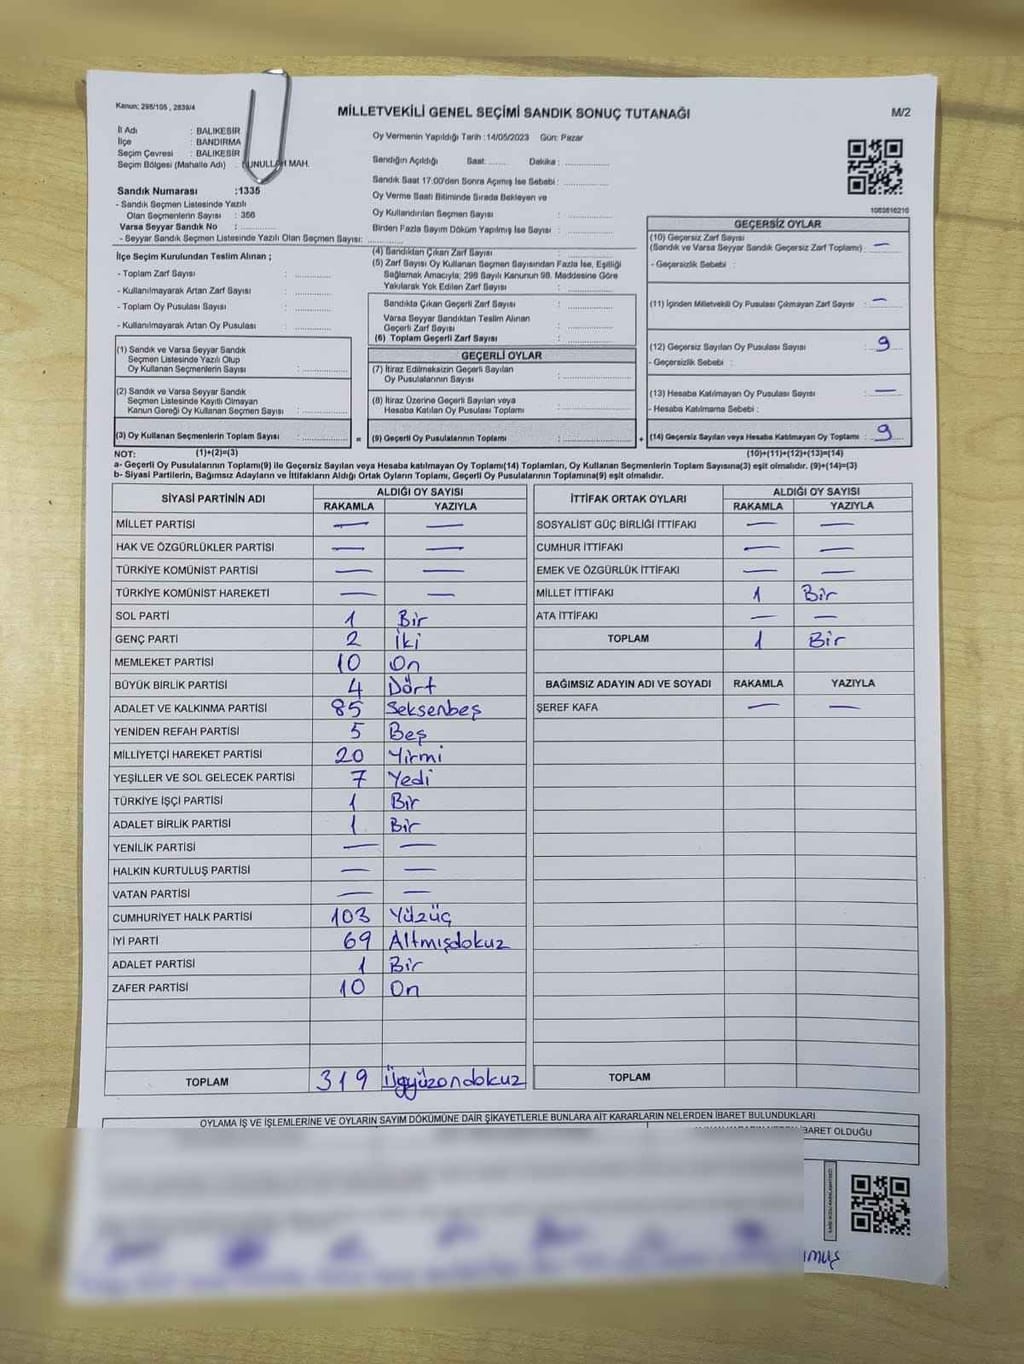 Kanun: 298/105 , 2839/4
MİLLETVEKİLİ GENEL SEÇİMİ SANDIK SONUÇ TUTANAĞI
M/2
İl Adı : BALIKESİR
İlçe : BANDIRMA
Seçim Çevresi : BALIKESİR
Seçim Bölgesi (Mahalle Adı) : MAH.
Sandık Numarası :1335
- Sandık Seçmen Listesinde Yazılı
Olan Seçmenlerin Sayısı : 356
Varsa Seyyar Sandık No :
- Seyyar Sandık Seçmen Listesinde Yazılı Olan Seçmen Sayısı:
İlçe Seçim Kurulundan Teslim Alınan ;
- Toplam Zarf Sayısı :
- Kullanılmayarak Artan Zarf Sayısı :
- Toplam Oy Pusulası Sayısı :
- Kullanılmayarak Artan Oy Pusulası :
(1) Sandık ve Varsa Seyyar Sandık
Seçmen Listesinde Yazılı Olup
Oy Kullanan Seçmenlerin Sayısı :
(2) Sandık ve Varsa Seyyar Sandık
Seçmen Listesinde Kayıtlı Olmayan
Kanun Gereği Oy Kullanan Seçmen Sayısı :
(3) Oy Kullanan Seçmenlerin Toplam Sayısı :
Oy Vermenin Yapıldığı Tarih :14/05/2023 Gün: Pazar
Sandığın Açıldığı Saat: Dakika :
Sandık Saat 17:00'den Sonra Açılmış İse Sebebi :
Oy Verme Saati Bitiminde Sırada Bekleyen ve
Oy Kullandırılan Seçmen Sayısı :
Birden Fazla Sayım Döküm Yapılmış İse Sayısı :
(4) Sandıktan Çıkan Zarf Sayısı :
(5) Zarf Sayısı Oy Kullanan Seçmen Sayısından Fazla İse, Eşitliği
Sağlamak Amacıyla; 298 Sayılı Kanunun 98. Maddesine Göre
Yakılarak Yok Edilen Zarf Sayısı :
Sandıkta Çıkan Geçerli Zarf Sayısı :
Varsa Seyyar Sandıktan Teslim Alınan
Geçerli Zarf Sayısı :
(6) Toplam Geçerli Zarf Sayısı :
GEÇERLİ OYLAR
(7) İtiraz Edilmeksizin Geçerli Sayılan
Oy Pusulalarının Sayısı :
(8) İtiraz Üzerine Geçerli Sayılan veya
Hesaba Katılan Oy Pusulası Toplamı :
= (9) Geçerli Oy Pusulalarının Toplamı :
1063616210
GEÇERSİZ OYLAR
(10) Geçersiz Zarf Sayısı
(Sandık ve Varsa Seyyar Sandık Geçersiz Zarf Toplamı) : —
- Geçersizlik Sebebi :
(11) İçinden Milletvekili Oy Pusulası Çıkmayan Zarf Sayısı : —
(12) Geçersiz Sayılan Oy Pusulası Sayısı : 9
- Geçersizlik Sebebi :
(13) Hesaba Katılmayan Oy Pusulası Sayısı : —
- Hesaba Katılmama Sebebi :
+ (14) Geçersiz Sayılan veya Hesaba Katılmayan Oy Toplamı : 9
NOT: (1)+(2)=(3) (10)+(11)+(12)+(13)=(14)
a- Geçerli Oy Pusulalarının Toplamı(9) ile Geçersiz Sayılan veya Hesaba katılmayan Oy Toplamı(14) Toplamları, Oy Kullanan Seçmenlerin Toplam Sayısına(3) eşit olmalıdır. (9)+(14)=(3)
b- Siyasi Partilerin, Bağımsız Adayların ve İttifakların Aldığı Ortak Oyların Toplamı, Geçerli Oy Pusulalarının Toplamına(9) eşit olmalıdır.
SİYASİ PARTİNİN ADI ALDIĞI OY SAYISI
RAKAMLA YAZIYLA
MİLLET PARTİSİ — —
HAK VE ÖZGÜRLÜKLER PARTİSİ — —
TÜRKİYE KOMÜNİST PARTİSİ — —
TÜRKİYE KOMÜNİST HAREKETİ — —
SOL PARTİ 1 Bir
GENÇ PARTİ 2 İki
MEMLEKET PARTİSİ 10 On
BÜYÜK BİRLİK PARTİSİ 4 Dört
ADALET VE KALKINMA PARTİSİ 85 Seksenbeş
YENİDEN REFAH PARTİSİ 5 Beş
MİLLİYETÇİ HAREKET PARTİSİ 20 Yirmi
YEŞİLLER VE SOL GELECEK PARTİSİ 7 Yedi
TÜRKİYE İŞÇİ PARTİSİ 1 Bir
ADALET BİRLİK PARTİSİ 1 Bir
YENİLİK PARTİSİ — —
HALKIN KURTULUŞ PARTİSİ — —
VATAN PARTİSİ — —
CUMHURİYET HALK PARTİSİ 103 Yüzüç
İYİ PARTİ 69 Altmışdokuz
ADALET PARTİSİ 1 Bir
ZAFER PARTİSİ 10 On
TOPLAM 319 Üçyüzondokuz
İTTİFAK ORTAK OYLARI ALDIĞI OY SAYISI
RAKAMLA YAZIYLA
SOSYALİST GÜÇ BİRLİĞİ İTTİFAKI — —
CUMHUR İTTİFAKI — —
EMEK VE ÖZGÜRLÜK İTTİFAKI — —
MİLLET İTTİFAKI 1 Bir
ATA İTTİFAKI — —
TOPLAM 1 Bir
BAĞIMSIZ ADAYIN ADI VE SOYADI RAKAMLA YAZIYLA
ŞEREF KAFA — —
TOPLAM
OYLAMA İŞ VE İŞLEMLERİNE VE OYLARIN SAYIM DÖKÜMÜNE DAİR ŞİKAYETLERLE BUNLARA AİT KARARLARIN NELERDEN İBARET BULUNDUKLARI
İBARET OLDUĞU